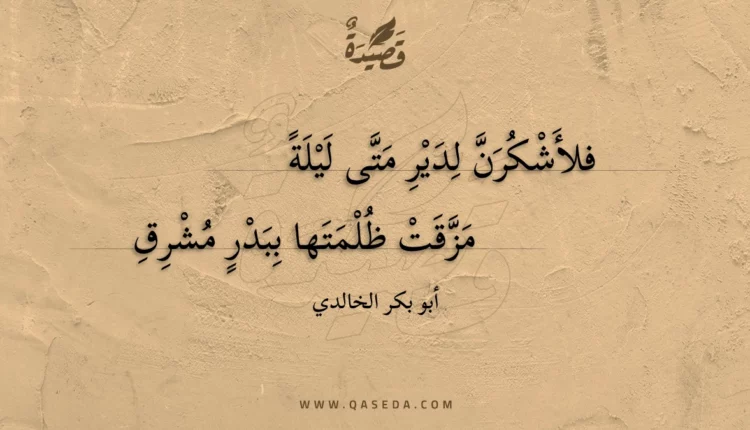 قَصِيدَةٌ
فلأَشْكُرَنَّ لِدَيْرِ مَتَّى لَيْلَةً
مَزَّقَتْ ظُلْمَتَها بِبَدْرٍ مُشْرِقِ
أبو بكر الخالدي
WWW.QASEDA.COM